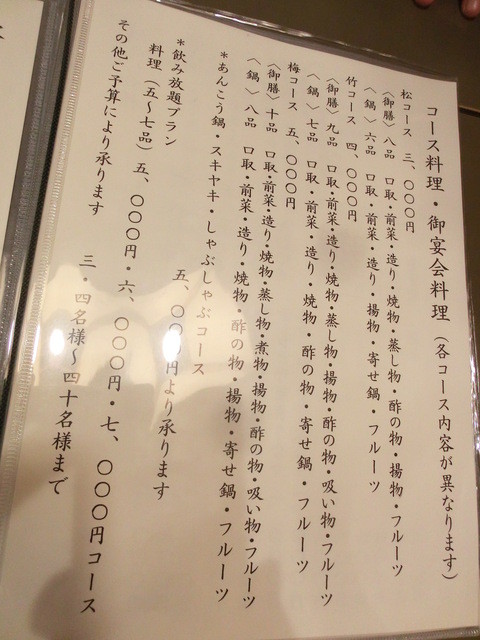 コース料理・御宴会料理(各コース内容が異なります)
松コース 三、〇〇〇円
〈御膳〉八品 口取・前菜・造り・焼物・蒸し物・酢の物・揚物・フルーツ
〈鍋〉六品 口取・前菜・造り・揚物・寄せ鍋・フルーツ
竹コース 四、〇〇〇円
〈御膳〉九品 口取・前菜・造り・焼物・蒸し物・揚物・酢の物・吸い物・フルーツ
〈鍋〉七品 口取・前菜・造り・焼物・酢の物・寄せ鍋・フルーツ
梅コース 五、〇〇〇円
〈御膳〉十品 口取・前菜・造り・焼物・蒸し物・煮物・揚物・酢の物・吸い物・フルーツ
〈鍋〉八品 口取・前菜・造り・焼物・酢の物・揚物・寄せ鍋・フルーツ
*あんこう鍋・スキヤキ・しゃぶしゃぶコース
五、〇〇〇円より承ります
*飲み放題プラン
料理(五〜七品)五、〇〇〇円・六、〇〇〇円・七、〇〇〇円コース
その他ご予算により承ります
三・四名様〜四十名様まで